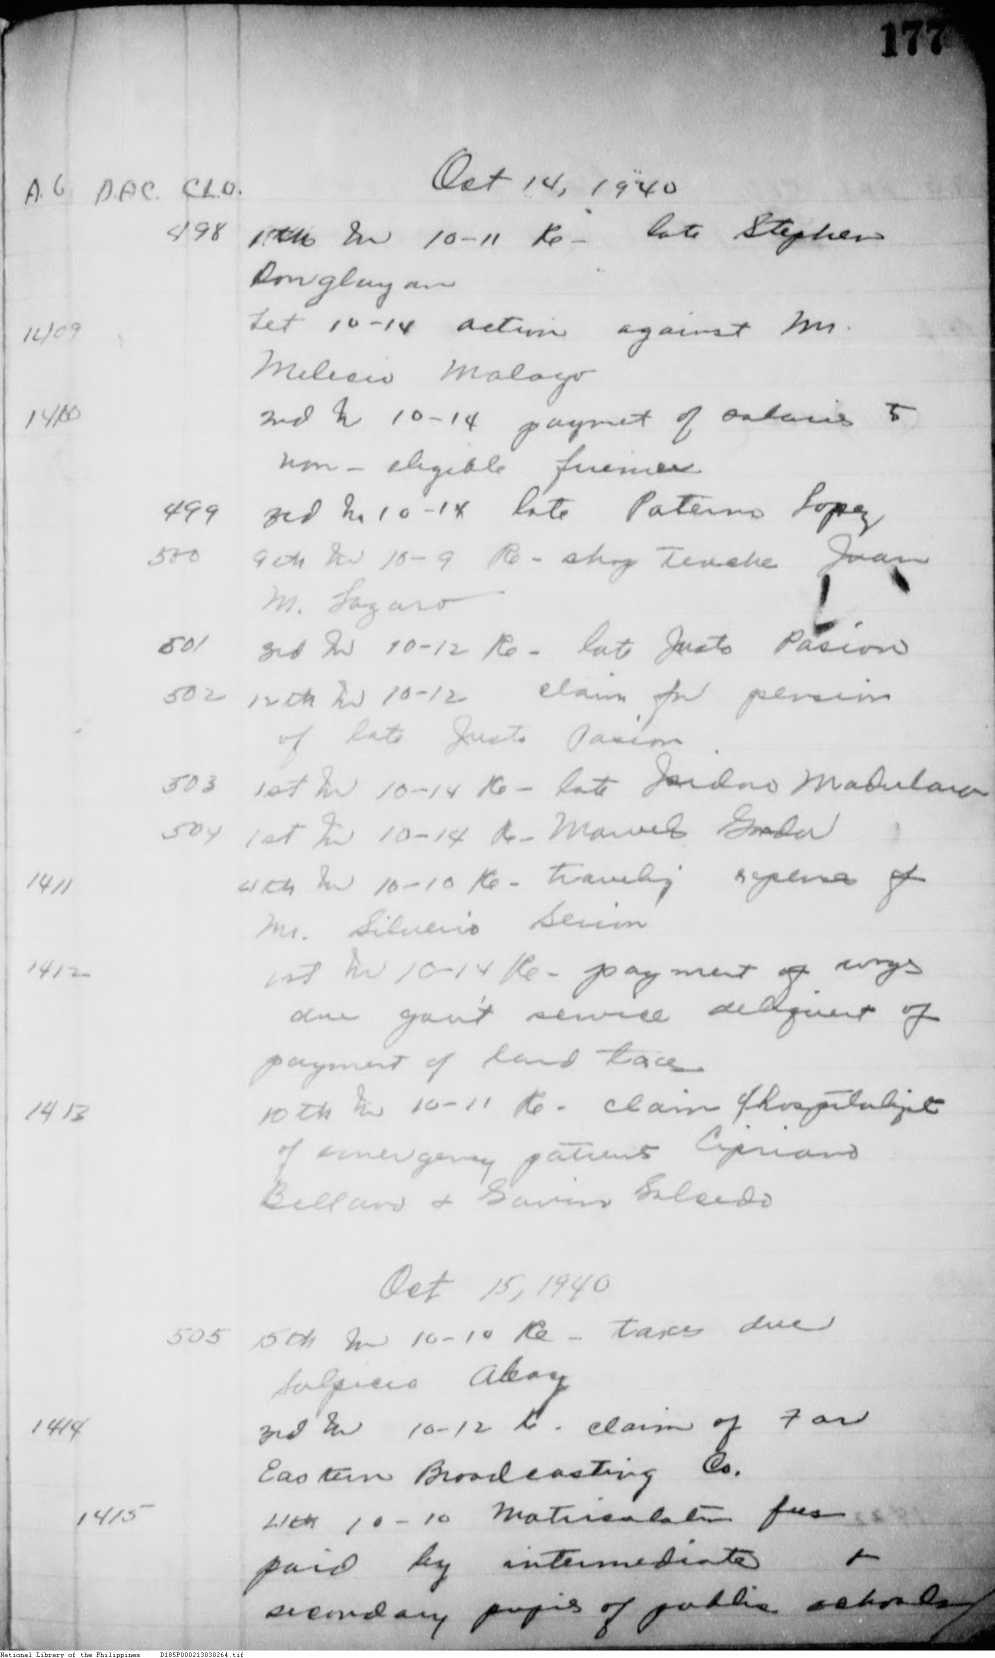 177
Oct 14, 1940
A.G D.A.C. C.L.O.
498 10-11 Re- late Stephen
Donglayan
1409 Let 10-14 action against Mr.
Melecio Malayo
1410 2nd In 10-14 paymet of salaries to
non-eligible firemen
499 3rd In 10-14 late Paterno Lopez
500 9th In 10-9 Re- shop teache Juan
M. Lazaro
501 3rd In 10-12 Re- late Justo Pasion
502 12th In 10-12 claim for pension
of late Justo Pasion
503 1st In 10-14 Re- late Isidoro Madulara
504 1st In 10-14 Re-
1411 4th In 10-10 Re- travelig expense of
Mr. Silverio
1412 1st In 10-14 Re- payment of wags
due gov't service deliquent of
payment of land taxes
1413 10th In 10-11 Re- claim of
of emergency patients Cipriano
& Salcedo
Oct 15, 1940
505 15th In 10-10 Re- taxes due
Sulpicio
1414 3rd In 10-12 Re- claim of Far
Eastern Broadcasting Co.
1415 4th 10-10 Matriculation fees
paid by intermediate &
secondary pupils of public schools
National Library of the Philippines D185P000213030264.tif